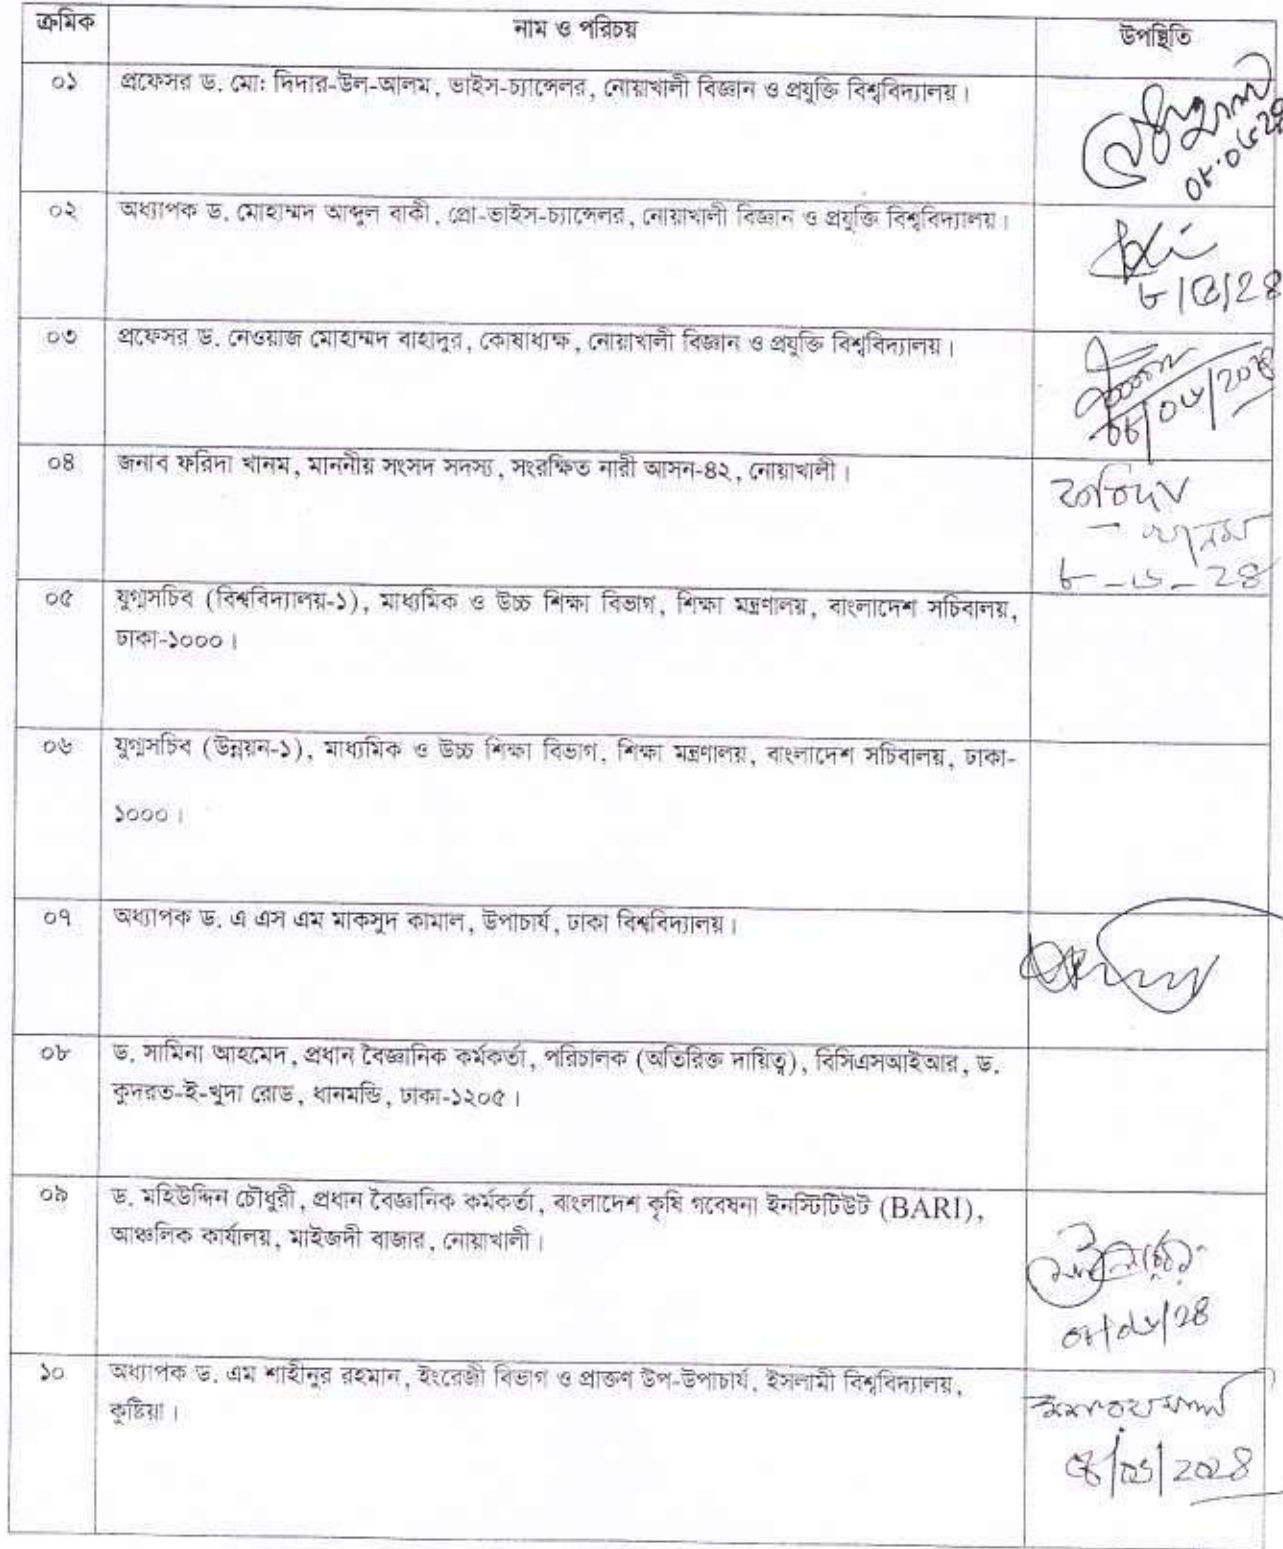 ক্রমিক নাম ও পরিচয় উপস্থিতি
০১ প্রফেসর ড. মো: দিদার-উল-আলম, ভাইস-চ্যান্সেলর, নোয়াখালী বিজ্ঞান ও প্রযুক্তি বিশ্ববিদ্যালয়।
০২ অধ্যাপক ড. মোহাম্মদ আব্দুল বাকী, প্রো-ভাইস-চ্যান্সেলর, নোয়াখালী বিজ্ঞান ও প্রযুক্তি বিশ্ববিদ্যালয়।
০৩ প্রফেসর ড. নেওয়াজ মোহাম্মদ বাহাদুর, কোষাধ্যক্ষ, নোয়াখালী বিজ্ঞান ও প্রযুক্তি বিশ্ববিদ্যালয়।
০৪ জনাব ফরিদা খানম, মাননীয় সংসদ সদস্য, সংরক্ষিত নারী আসন-৪২, নোয়াখালী।
ফরিদা
খানম
৮-৬-২৪
০৫ যুগ্মসচিব (বিশ্ববিদ্যালয়-১), মাধ্যমিক ও উচ্চ শিক্ষা বিভাগ, শিক্ষা মন্ত্রণালয়, বাংলাদেশ সচিবালয়,
ঢাকা-১০০০।
০৬ যুগ্মসচিব (উন্নয়ন-১), মাধ্যমিক ও উচ্চ শিক্ষা বিভাগ, শিক্ষা মন্ত্রণালয়, বাংলাদেশ সচিবালয়, ঢাকা-
১০০০।
০৭ অধ্যাপক ড. এ এস এম মাকসুদ কামাল, উপাচার্য, ঢাকা বিশ্ববিদ্যালয়।
০৮ ড. সামিনা আহমেদ, প্রধান বৈজ্ঞানিক কর্মকর্তা, পরিচালক (অতিরিক্ত দায়িত্ব), বিসিএসআইআর, ড.
কুদরত-ই-খুদা রোড, ধানমন্ডি, ঢাকা-১২০৫।
০৯ ড. মহিউদ্দিন চৌধুরী, প্রধান বৈজ্ঞানিক কর্মকর্তা, বাংলাদেশ কৃষি গবেষনা ইনস্টিটিউট (BARI),
আঞ্চলিক কার্যালয়, মাইজদী বাজার, নোয়াখালী।
০৮/০৬/২৪
১০ অধ্যাপক ড. এম শাহীনুর রহমান, ইংরেজী বিভাগ ও প্রাক্তণ উপ-উপাচার্য, ইসলামী বিশ্ববিদ্যালয়,
কুষ্টিয়া।